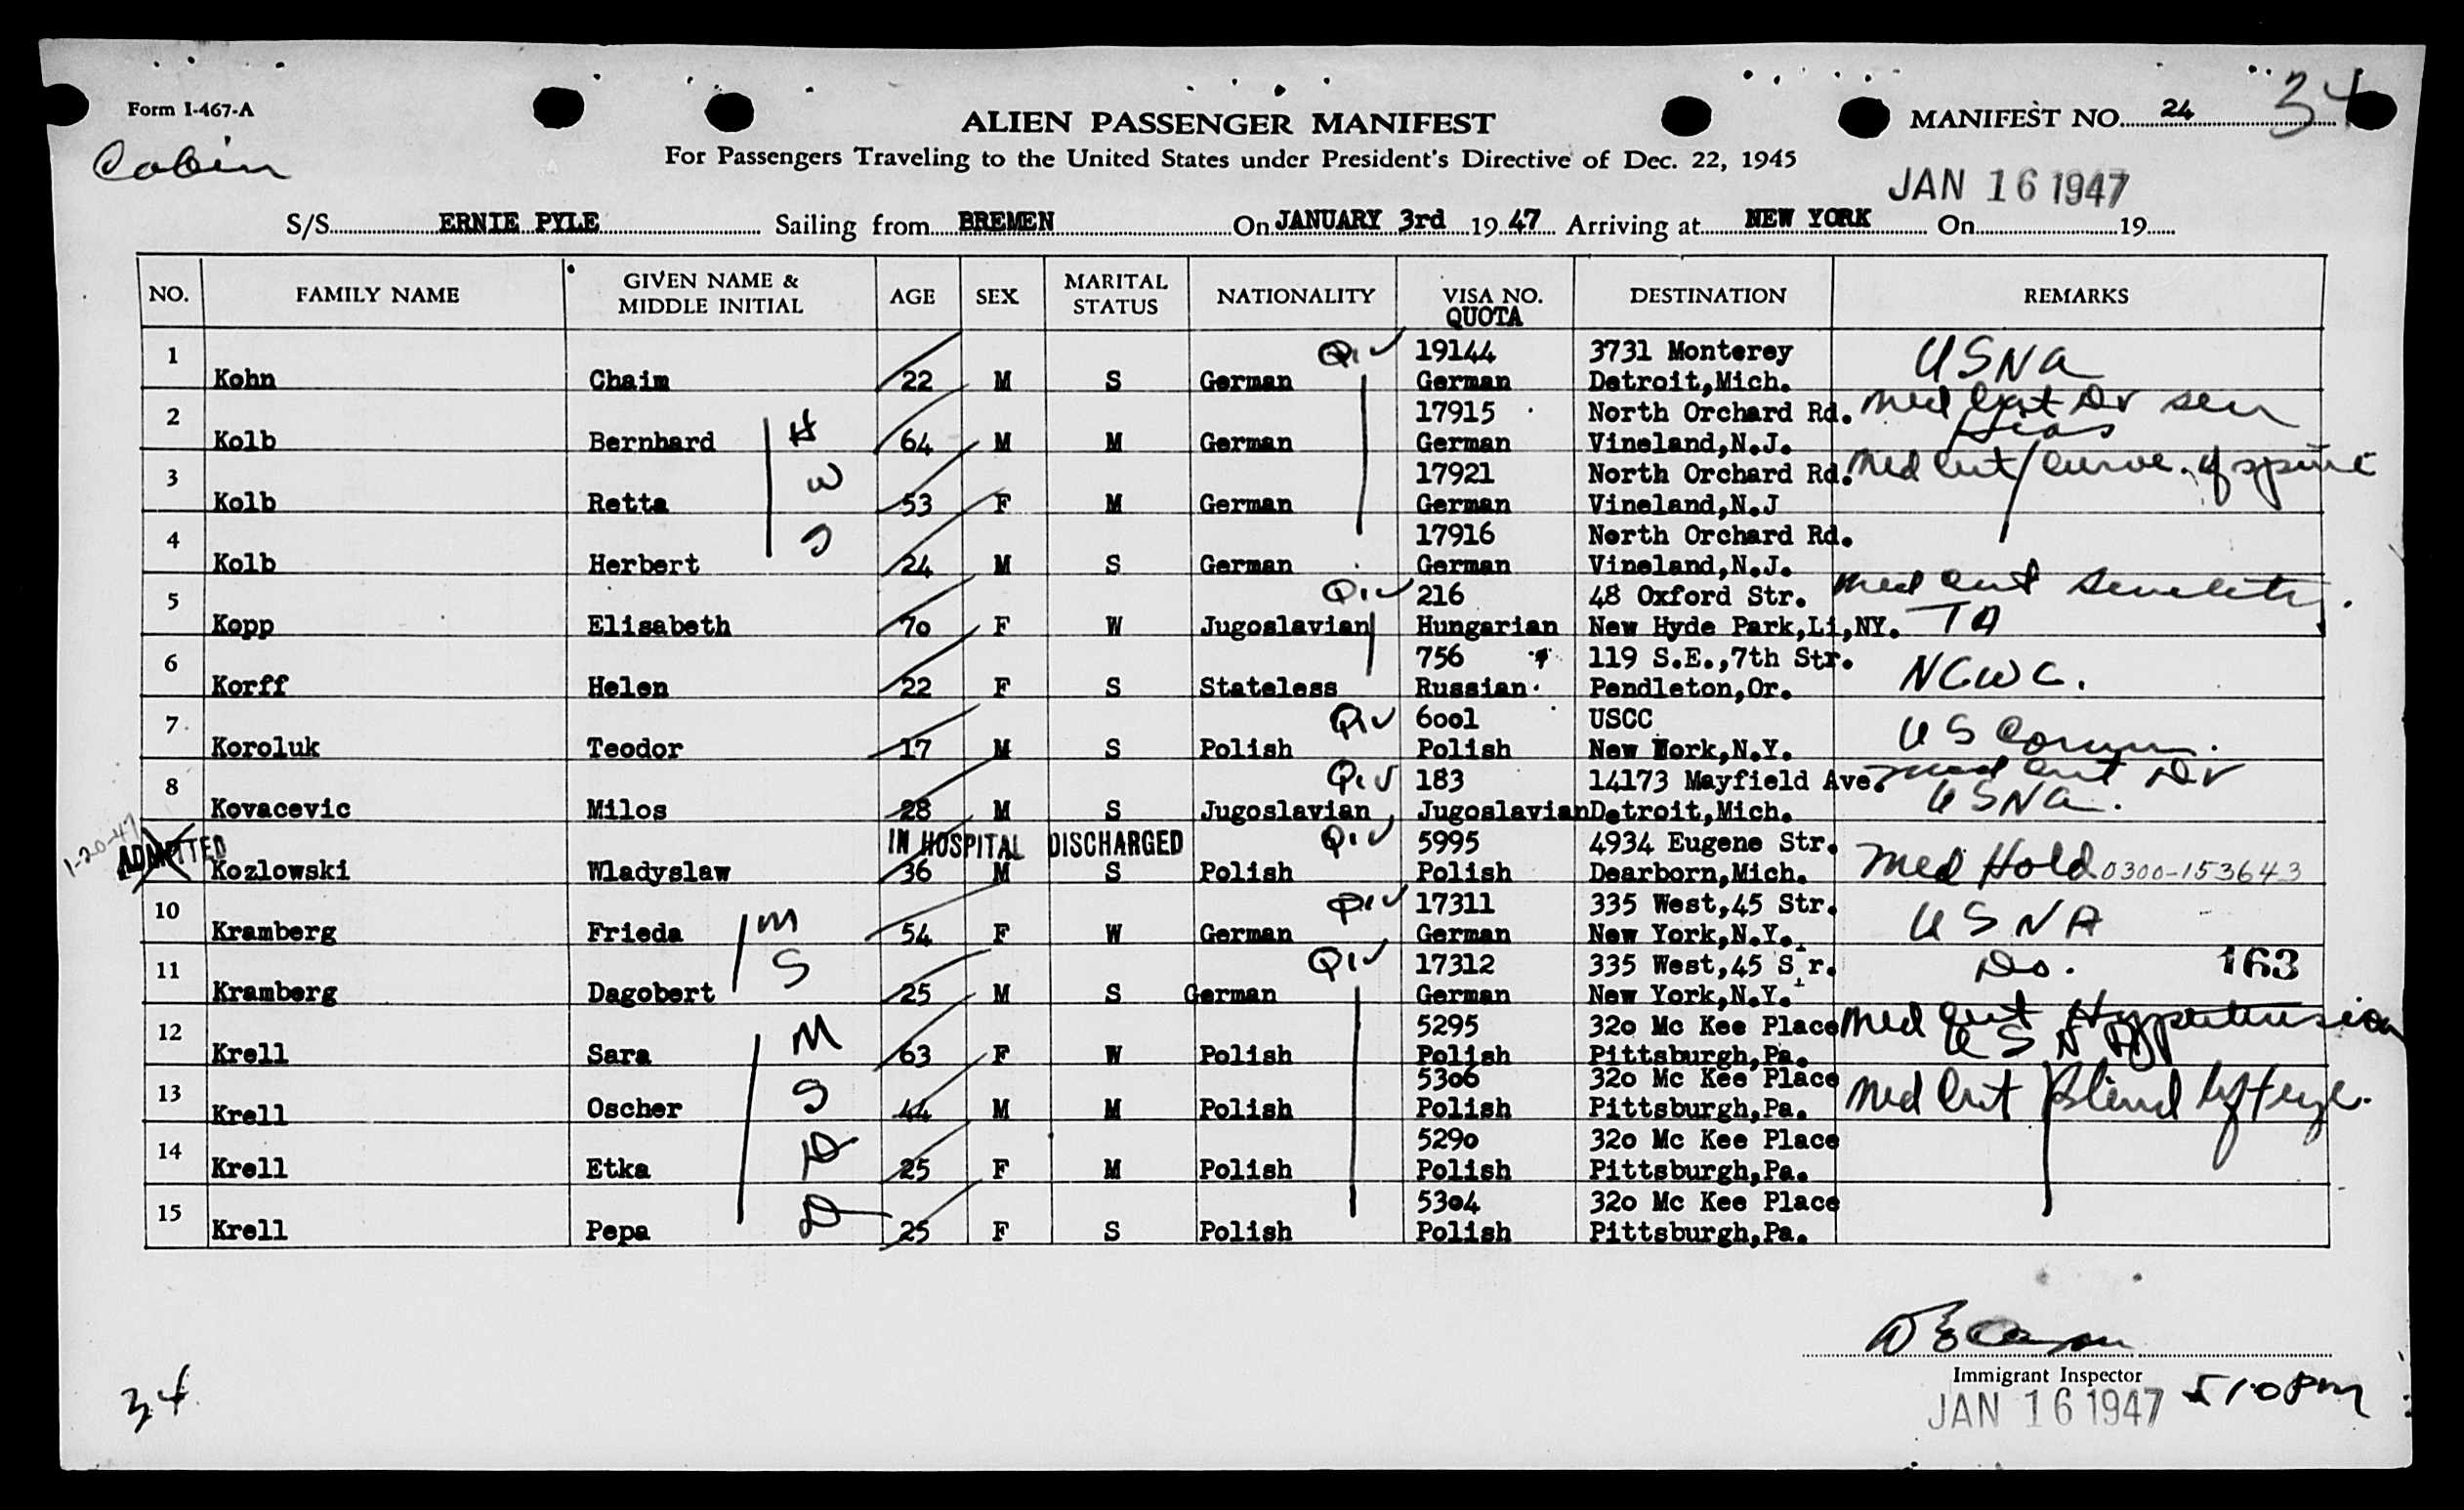 Form I-467-A
Cabin
ALIEN PASSENGER MANIFEST
MANIFEST NO. 24
34
For Passengers Traveling to the United States under President's Directive of Dec. 22, 1945
JAN 16 1947
S/S ERNIE PYLE Sailing from BREMEN On JANUARY 3rd 19 47 Arriving at NEW YORK On 19
NO. FAMILY NAME GIVEN NAME & MIDDLE INITIAL AGE SEX MARITAL STATUS NATIONALITY VISA NO. QUOTA DESTINATION REMARKS
1 QIV 19144 3731 Monterey USNA
Kohn Chaim 22 M S German German Detroit,Mich.
2 H 17915 North Orchard Rd. Med Cert Dv sen
Kolb Bernhard 64 M M German German Vineland,N.J. Hias
3 W 17921 North Orchard Rd. Med Cert curve. of spine
Kolb Retta 53 F M German German Vineland,N.J
4 S 17916 North Orchard Rd.
Kolb Herbert 24 M S German German Vineland,N.J.
5 QIV 216 48 Oxford Str. Med Cert
Kopp Elisabeth 70 F W Jugoslavian Hungarian New Hyde Park,Li,NY.
6 756 119 S.E.,7th Str. NCWC.
Korff Helen 22 F S Stateless Russian Pendleton,Or.
7 QIV 6001 USCC US Comm.
Koroluk Teodor 17 M S Polish Polish New York,N.Y.
8 QIV 183 14173 Mayfield Ave. Med Cert Dv
Kovacevic Milos 28 M S Jugoslavian Jugoslavian Detroit,Mich. USNA.
1-20-47 ADMITTED IN HOSPITAL DISCHARGED QIV 5995 4934 Eugene Str. Med Hold 0300-153643
Kozlowski Wladyslaw 36 M S Polish Polish Dearborn,Mich.
10 M QIV 17311 335 West,45 Str. USNA
Kramberg Frieda 54 F W German German New York,N.Y.
11 S QIV 17312 335 West,45 Str. Do. 163
Kramberg Dagobert 25 M S German German New York,N.Y.
12 M 5295 320 Mc Kee Place Med Cert Hypertension
Krell Sara 63 F W Polish Polish Pittsburgh,Pa. USNA
13 S 5306 320 Mc Kee Place Med Cert Blind left eye.
Krell Oscher 44 M M Polish Polish Pittsburgh,Pa.
14 D 5290 320 Mc Kee Place
Krell Etka 25 F M Polish Polish Pittsburgh,Pa.
15 D 5304 320 Mc Kee Place
Krell Pepa 25 F S Polish Polish Pittsburgh,Pa.
Immigrant Inspector
34
JAN 16 1947